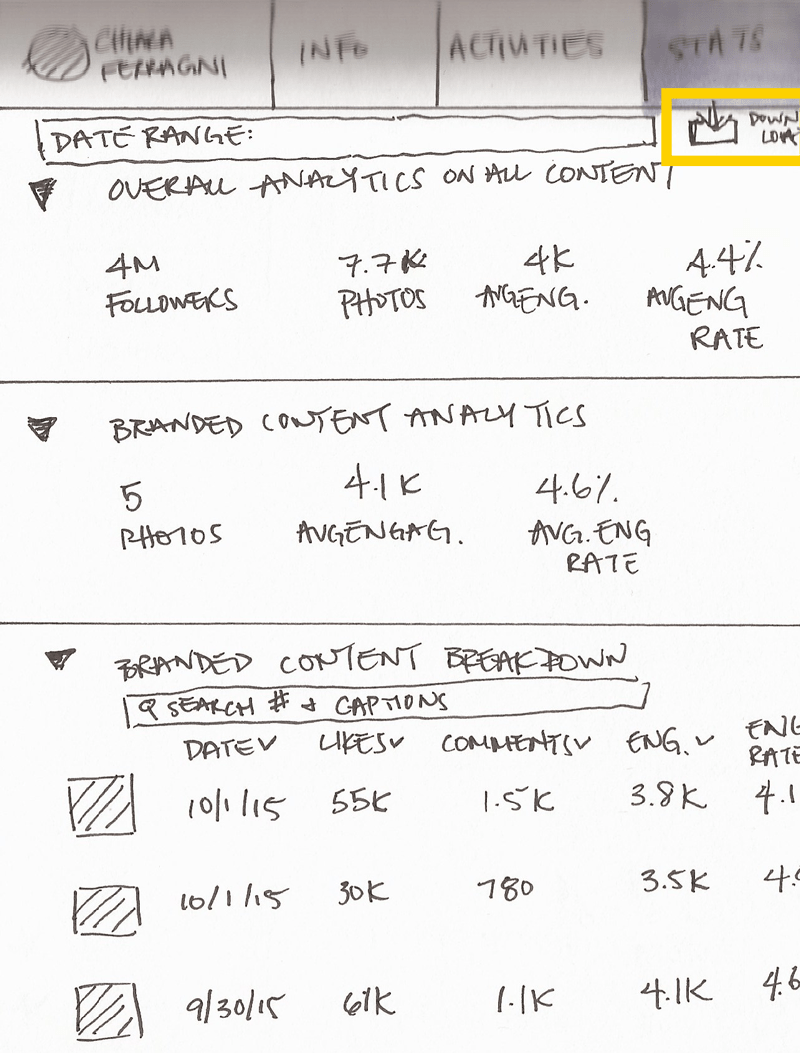 CHIARA
FERRAGNI
INFO
ACTIVITIES
STATS
DATE RANGE:
DOWN
LOA
OVERALL ANALYTICS ON ALL CONTENT
4M
FOLLOWERS
7.7K
PHOTOS
4K
AVGENG.
4.4%
AVGENG
RATE
BRANDED CONTENT ANALYTICS
5
PHOTOS
4.1K
AVGENGAG.
4.6%
AVG.ENG
RATE
BRANDED CONTENT BREAKDOWN
SEARCH # + CAPTIONS
DATE LIKES COMMENTS ENG. ENG
RATE
10/1/15 55K 1.5K 3.8K 4.1
10/1/15 30K 780 3.5K 4.
9/30/15 61K 1.1K 4.1K 4.6